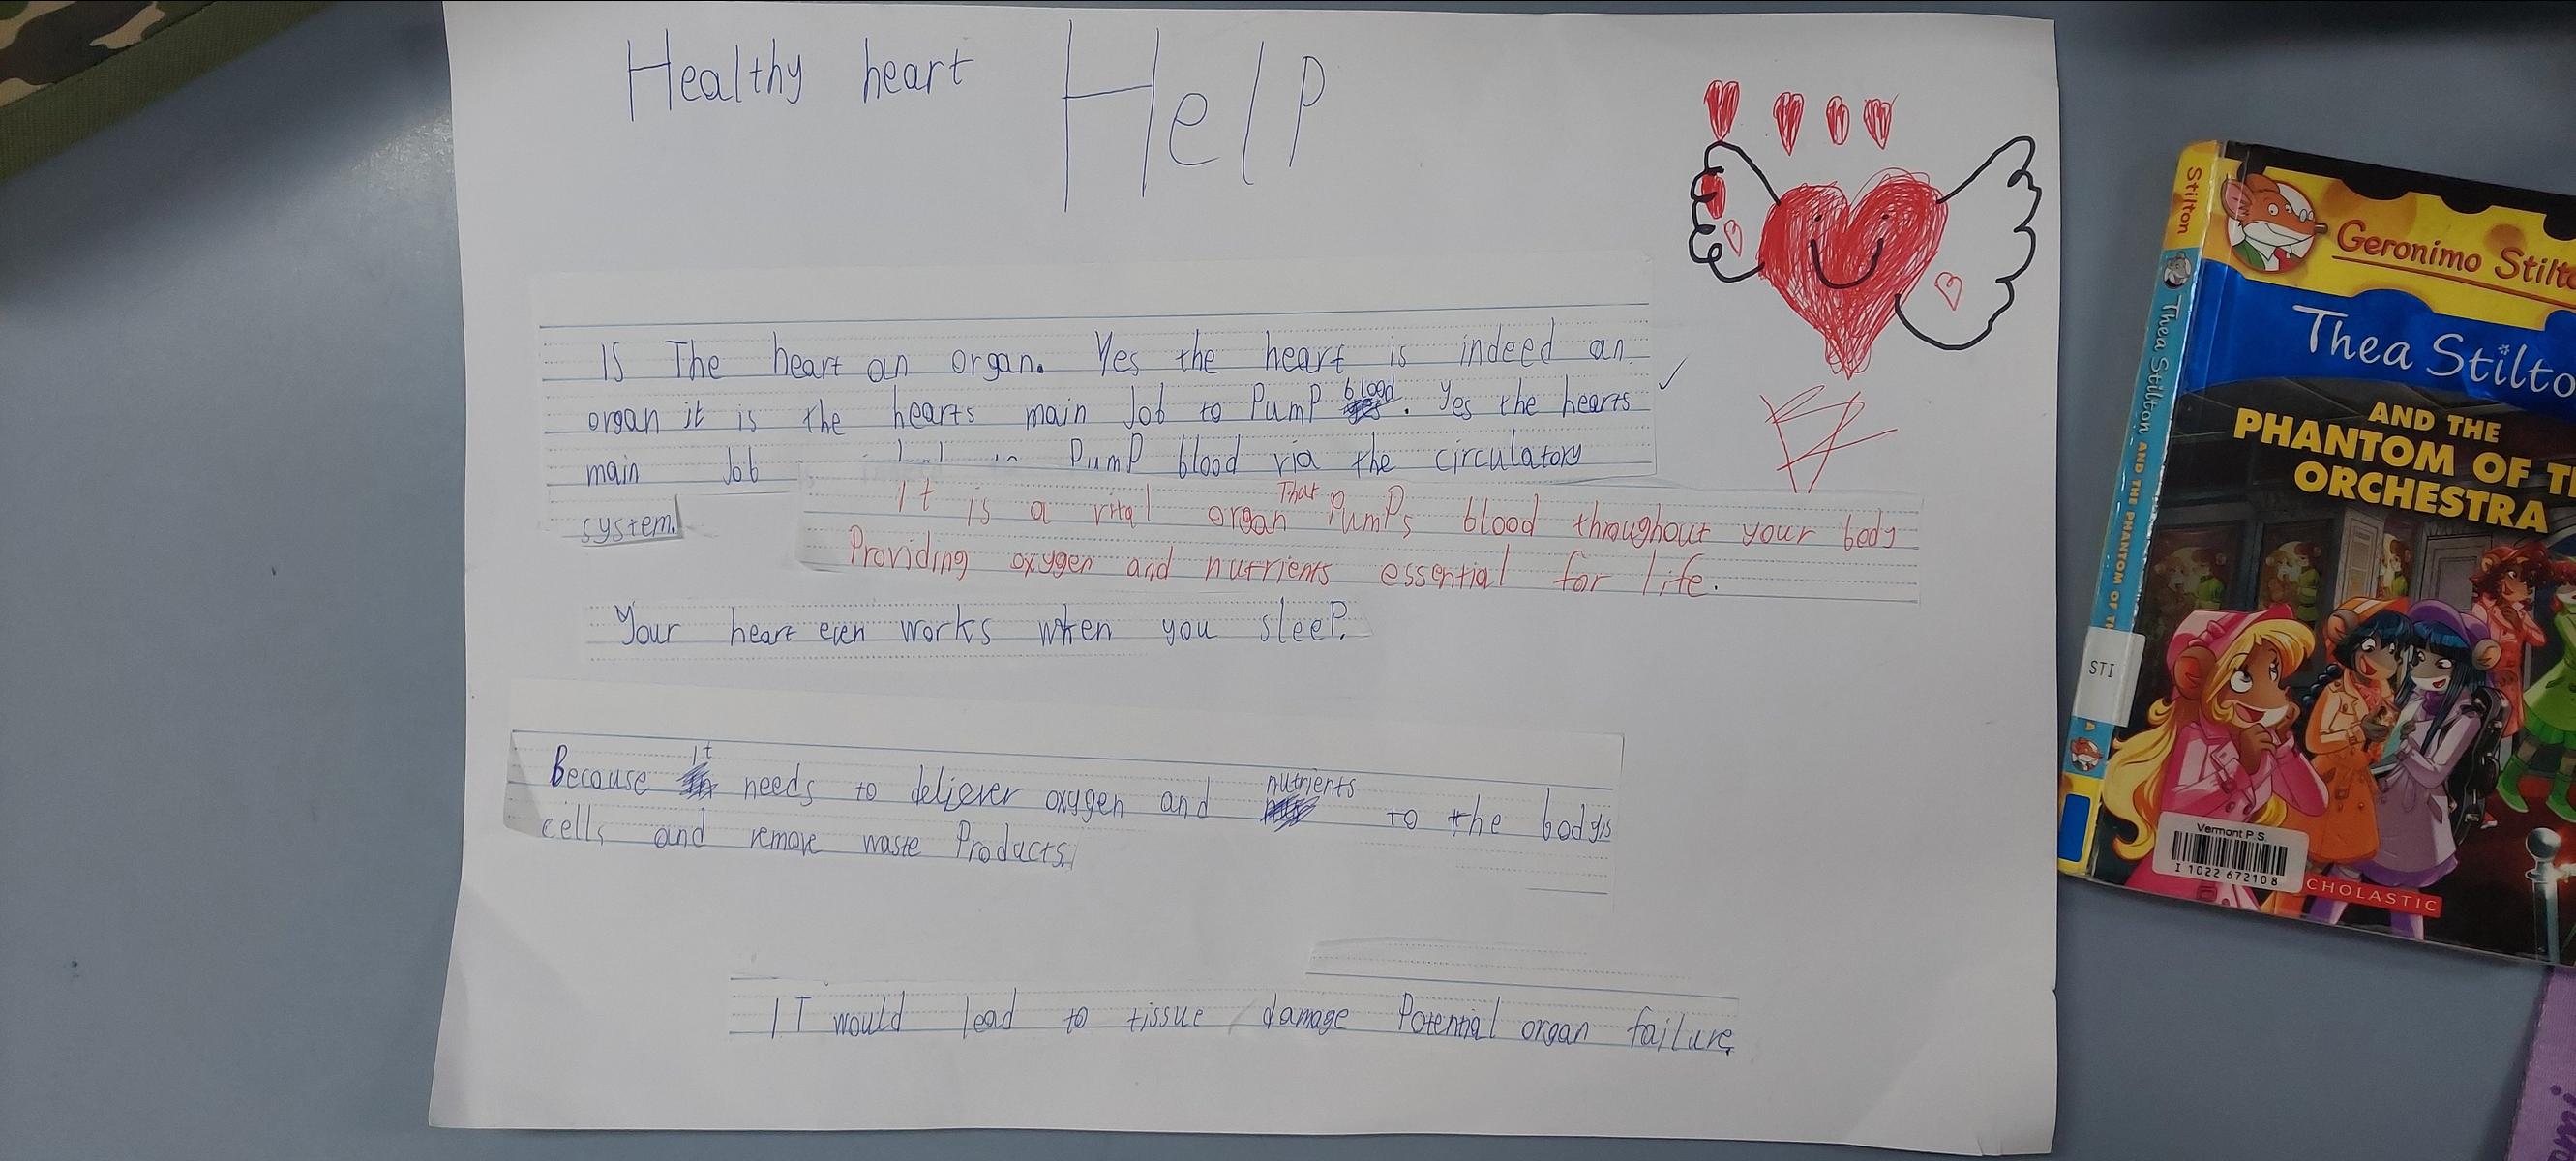 Healthy heart Help
IS The heart an organ. Yes the heart is indeed an
organ it is the hearts main Job to PumP blood. Yes the hearts
main Job PumP blood via the circulatory
system.
It is a vital organ That PumPs blood throughout your body
Providing oxygen and nutrients essential for life.
Your heart even works when you sleeP.
Because It needs to deliever oxygen and nutrients to the body's
cells and remove waste Products.
IT would lead to tissue damage Potential organ failure.
Stilton
Thea Stilton AND THE PHANTOM OF
STI
Geronimo
Thea
AND THE
PHANTOM OF
ORCHESTRA
Vermont P.S.
I 1022 672108